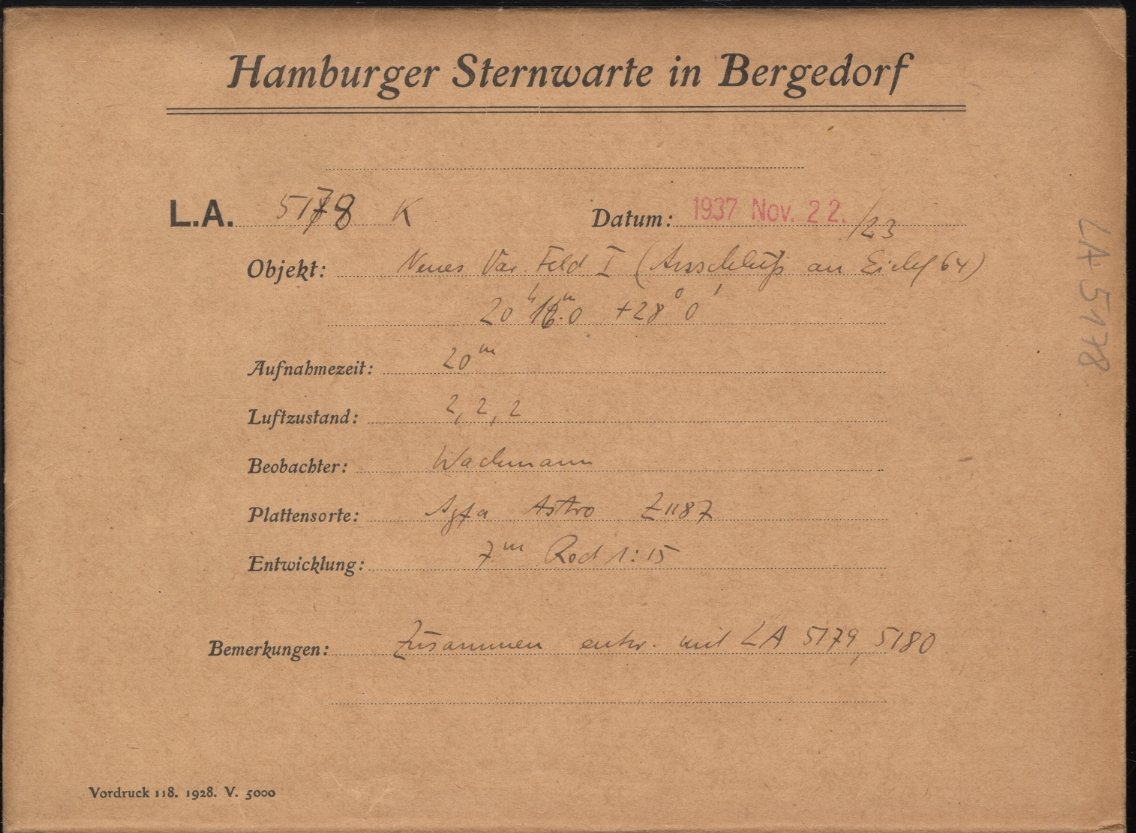 Hamburger Sternwarte in Bergedorf
L.A. 5178 K Datum: 1937 Nov. 22./23
Objekt: Neues Var. Feld I (Anschluß an Eichf 64)
20ʰ 16ᵐ.0 +28° 0'
Aufnahmezeit: 20ᵐ
Luftzustand: 2, 2, 2
Beobachter: Wachmann
Plattensorte: Agfa Astro Z1187
Entwicklung: 7ᵐ Rod 1:15
Bemerkungen: Zusammen entw. mit LA 5179, 5180
Vordruck 118. 1928. V. 5000
LA 5178